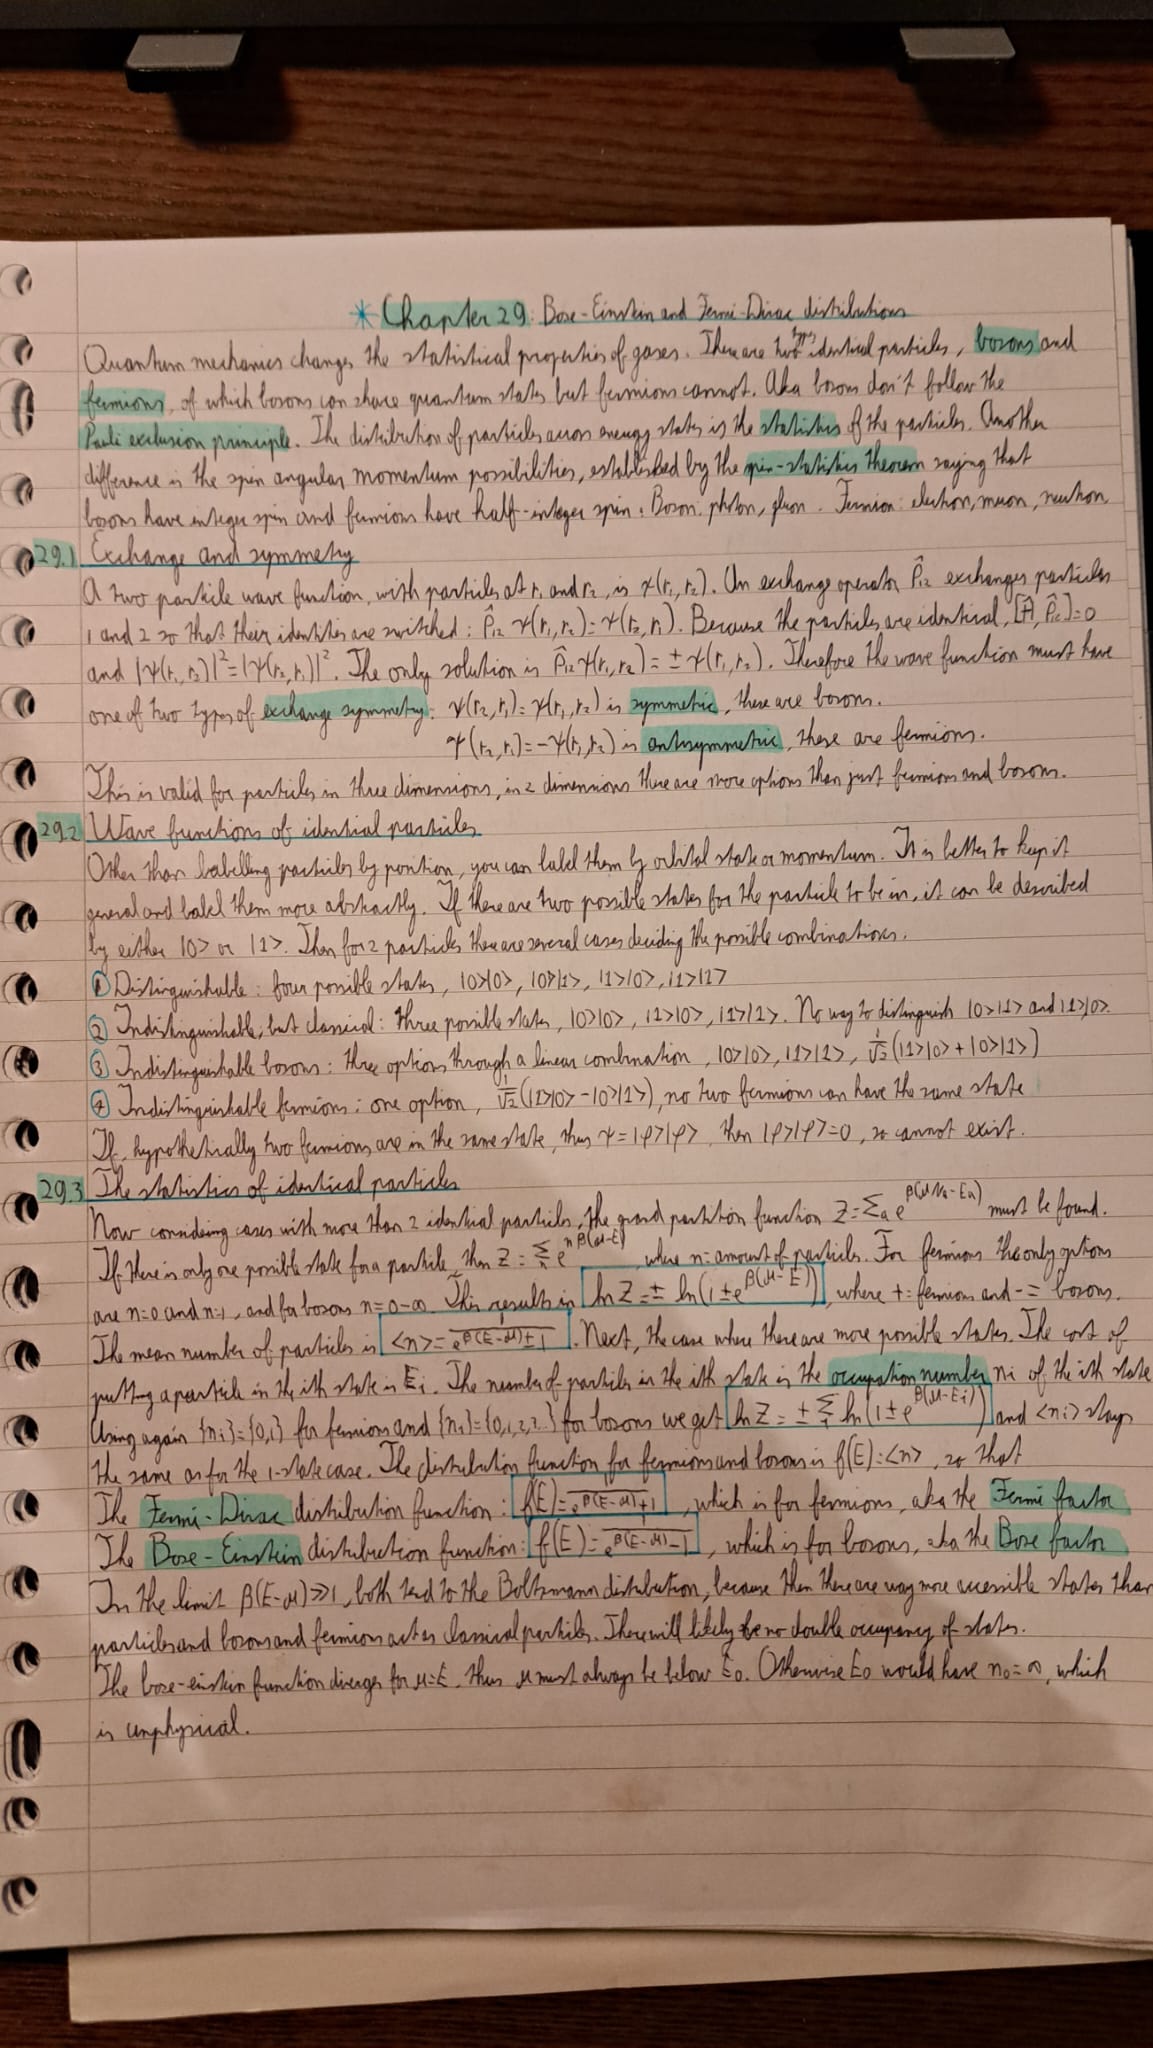 * Chapter 29: Bose-Einstein and Fermi-Dirac distributions
Quantum mechanics changes the statistical properties of gases. There are two types identical particles, bosons and
fermions, of which bosons can share quantum states but fermions cannot. Aka bosons don't follow the
Pauli exclusion principle. The distribution of particles across energy states is the statistics of the particles. Another
difference is the spin angular momentum possibilities, established by the spin-statistics theorem saying that
bosons have integer spin and fermions have half-integer spin. Boson: photon, gluon. Fermion: electron, muon, neutron
29.1 Exchange and symmetry
A two particle wave function, with particles at r₁ and r₂, is ψ(r₁, r₂). An exchange operator P̂₁₂ exchanges particles
1 and 2 so that their identities are switched: P̂₁₂ ψ(r₁, r₂) = ψ(r₂, r₁). Because the particles are identical, [Ĥ, P̂₁₂]=0
and |ψ(r₁, r₂)|² = |ψ(r₂, r₁)|². The only solution is P̂₁₂ ψ(r₁, r₂) = ± ψ(r₁, r₂). Therefore the wave function must have
one of two types of exchange symmetry: ψ(r₂, r₁) = ψ(r₁, r₂) is symmetric, these are bosons.
ψ(r₂, r₁) = -ψ(r₁, r₂) is antisymmetric, these are fermions.
This is valid for particles in three dimensions, in 2 dimensions there are more options than just fermions and bosons.
29.2 Wave functions of identical particles
Other than labelling particles by position, you can label them by orbital state or momentum. It is better to keep it
general and label them more abstractly. If there are two possible states for the particle to be in, it can be described
by either |0> or |1>. Then for 2 particles there are several cases deciding the possible combinations.
① Distinguishable: four possible states, |0>|0>, |0>|1>, |1>|0>, |1>|1>
② Indistinguishable, but classical: three possible states, |0>|0>, |1>|0>, |1>|1>. No way to distinguish |0>|1> and |1>|0>.
③ Indistinguishable bosons: three options through a linear combination, |0>|0>, |1>|1>, 1/√2 (|1>|0> + |0>|1>)
④ Indistinguishable fermions: one option, 1/√2 (|1>|0> - |0>|1>), no two fermions can have the same state
If, hypothetically two fermions are in the same state, thus ψ = |φ>|φ>, then |φ>|φ> = 0, so cannot exist.
29.3 The statistics of identical particles
Now considering cases with more than 2 identical particles, the grand partition function Z = Σₐ e^β(μNₐ-Eₐ) must be found.
If there is only one possible state for a particle, then Z = Σₙ e^nβ(μ-E) where n = amount of particles. For fermions the only options
are n=0 and n=1, and for bosons n=0-∞. This results in ln Z = ± ln(1 ± e^β(μ-E)), where + = fermions and - = bosons.
The mean number of particles is <n> = 1/(e^β(E-μ) ± 1). Next, the case where there are more possible states. The cost of
putting a particle in the ith state is Eᵢ. The number of particles in the ith state is the occupation number nᵢ of the ith state
Using again {nᵢ}={0,1} for fermions and {nᵢ}={0,1,2,3..} for bosons we get ln Z = ± Σᵢ ln(1 ± e^β(μ-Eᵢ)) and <nᵢ> stays
the same as for the 1-state case. The distribution function for fermions and bosons is f(E) = <n>, so that
The Fermi-Dirac distribution function: f(E) = 1/(e^β(E-μ) + 1), which is for fermions, aka the Fermi factor
The Bose-Einstein distribution function: f(E) = 1/(e^β(E-μ) - 1), which is for bosons, aka the Bose factor
In the limit β(E-μ)≫1, both tend to the Boltzmann distribution, because then there are way more accessible states than
particles and bosons and fermions act as classical particles. There will likely be no double occupancy of states.
The bose-einstein function diverges for μ=E, thus μ must always be below E₀. Otherwise E₀ would have n₀=∞, which
is unphysical.